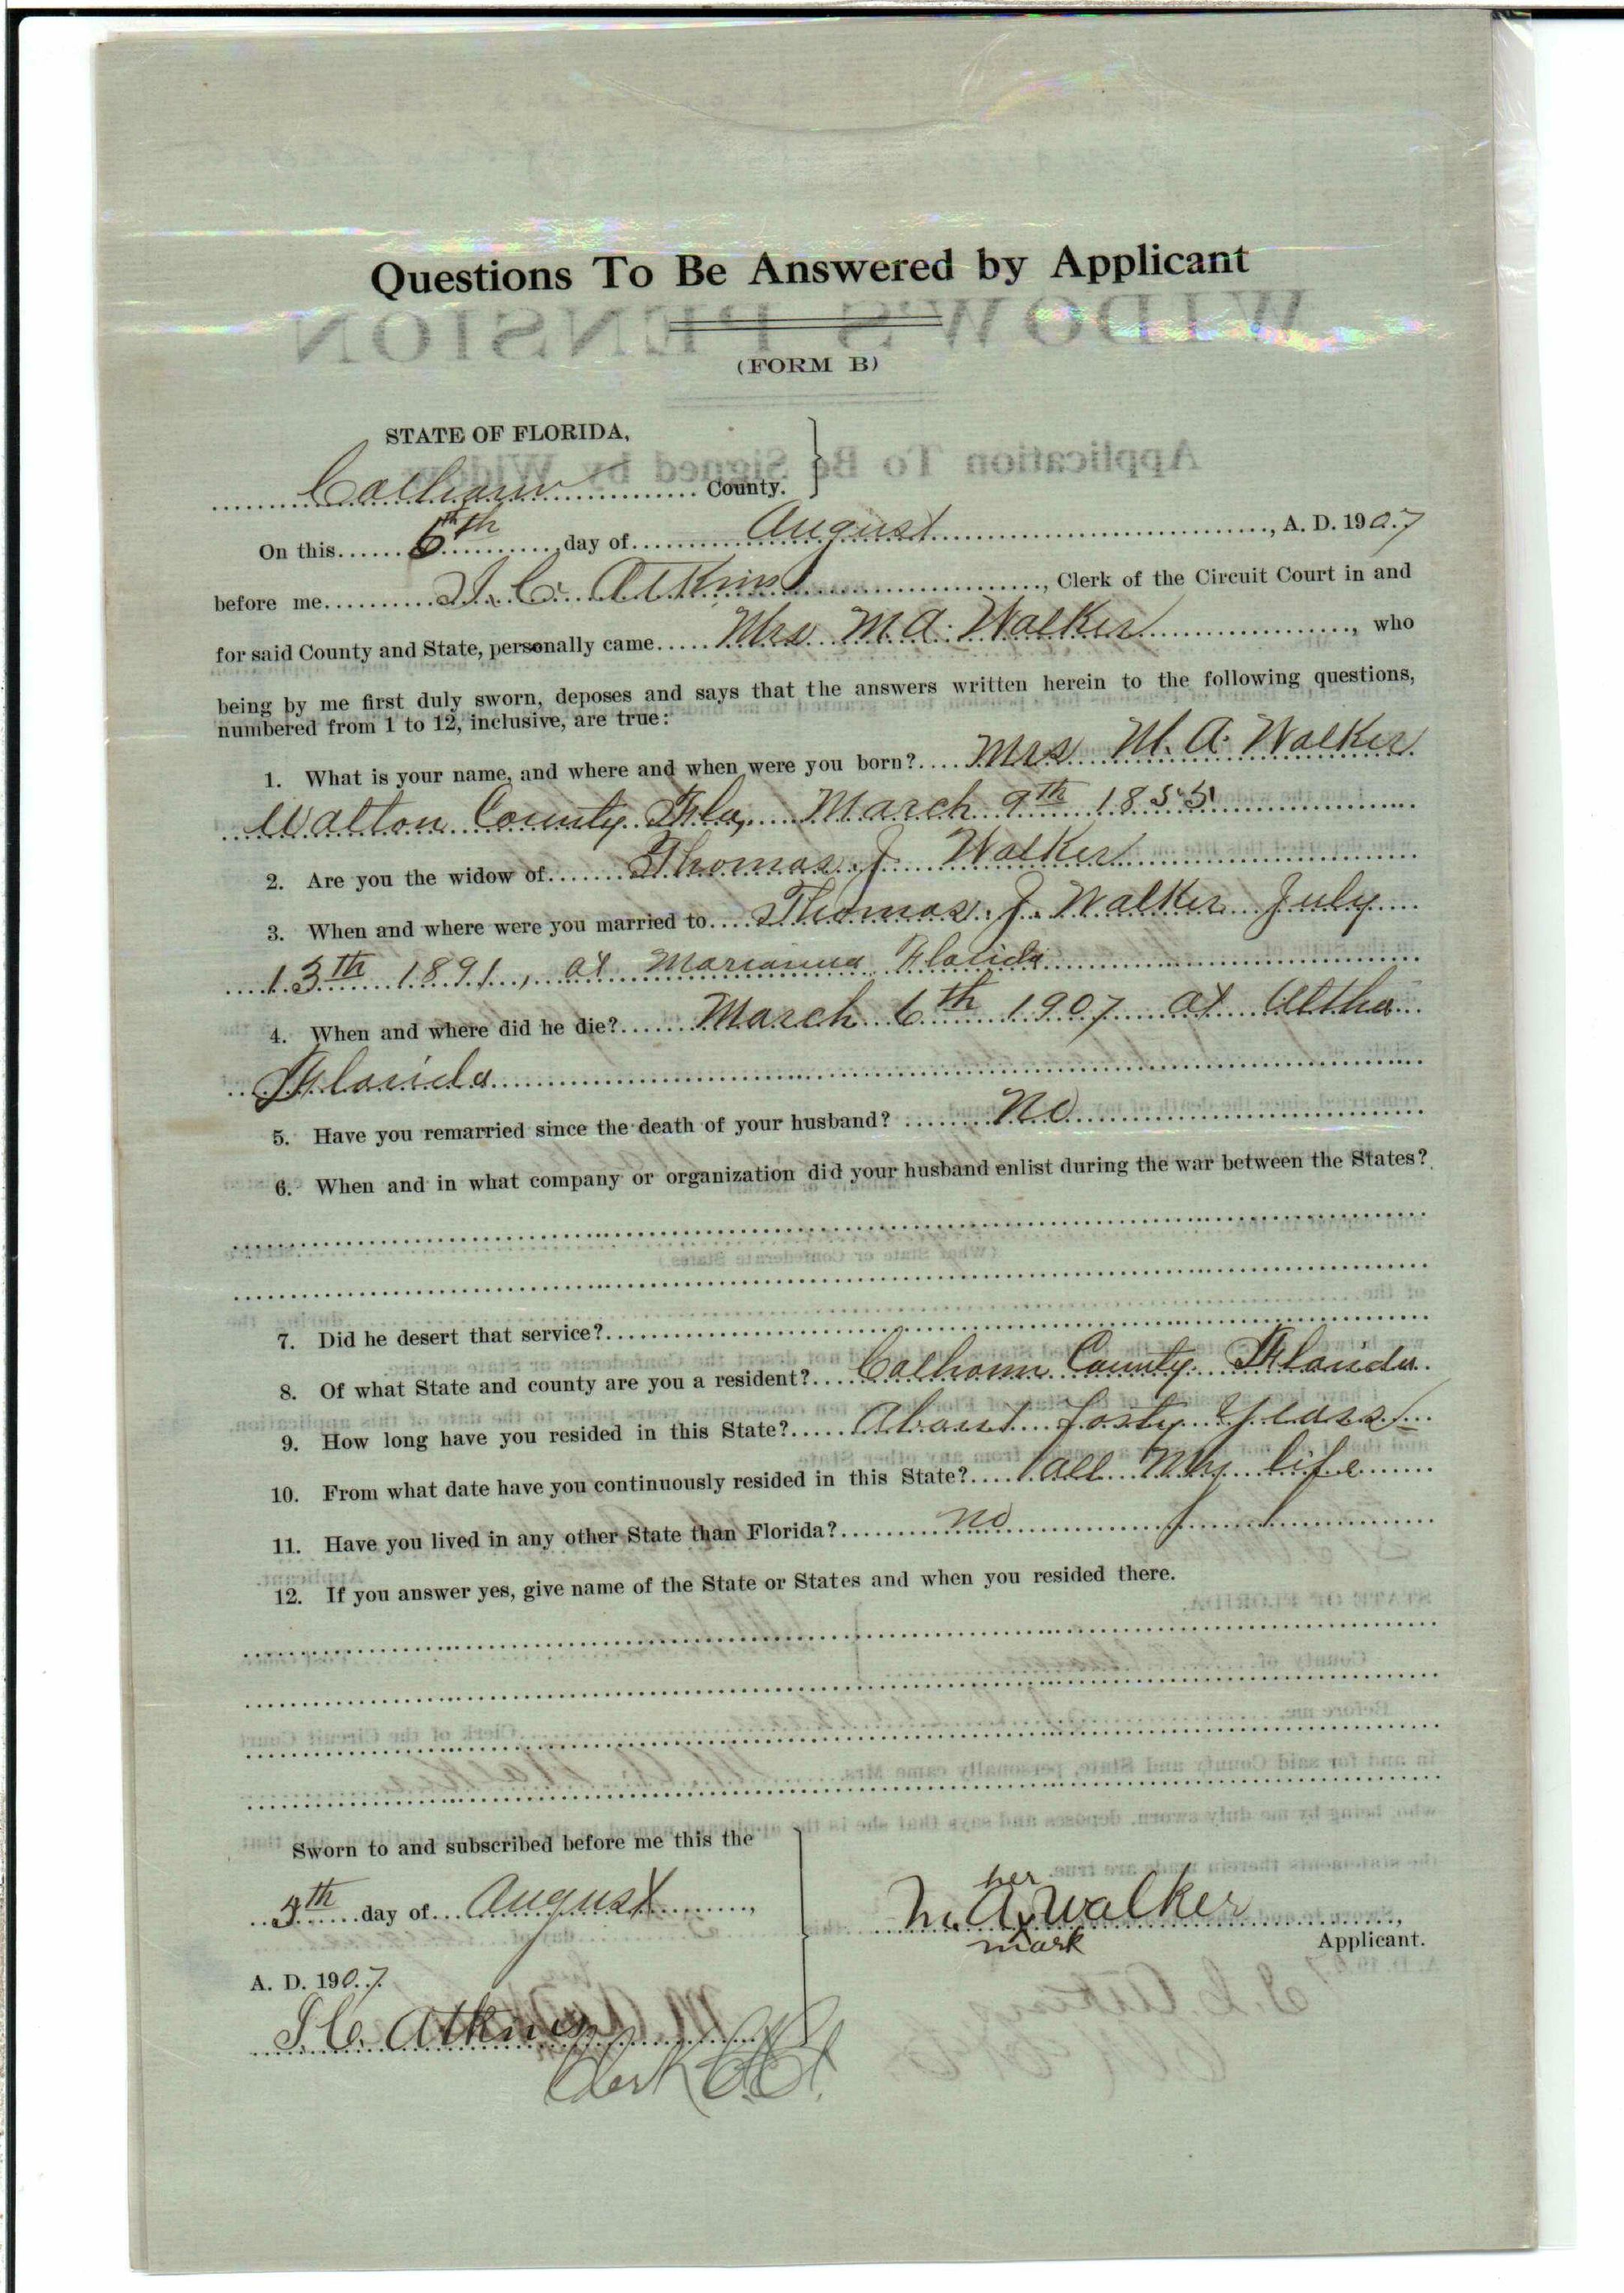 Questions To Be Answered by Applicant
(FORM B)
STATE OF FLORIDA,
Calhoun County.
On this 6th day of August, A. D. 1907
before me J. C. Atkins, Clerk of the Circuit Court in and
for said County and State, personally came Mrs M. A. Walker, who
being by me first duly sworn, deposes and says that the answers written herein to the following questions,
numbered from 1 to 12, inclusive, are true:
1. What is your name, and where and when were you born? Mrs M. A. Walker
Walton County Fla, March 9th 1855
2. Are you the widow of Thomas J Walker
3. When and where were you married to Thomas J. Walker July
13th 1891, at Marianna Florida
4. When and where did he die? March 6th 1907 at Altha
Florida
5. Have you remarried since the death of your husband? No
6. When and in what company or organization did your husband enlist during the war between the States?
7. Did he desert that service?
8. Of what State and county are you a resident? Calhoun County Florida
9. How long have you resided in this State? About forty years
10. From what date have you continuously resided in this State? all my life
11. Have you lived in any other State than Florida? no
12. If you answer yes, give name of the State or States and when you resided there.
Sworn to and subscribed before me this the
day of August,
A. D. 1907
J. C. Atkins
Clerk
her
M. A. x Walker,
mark
Applicant.